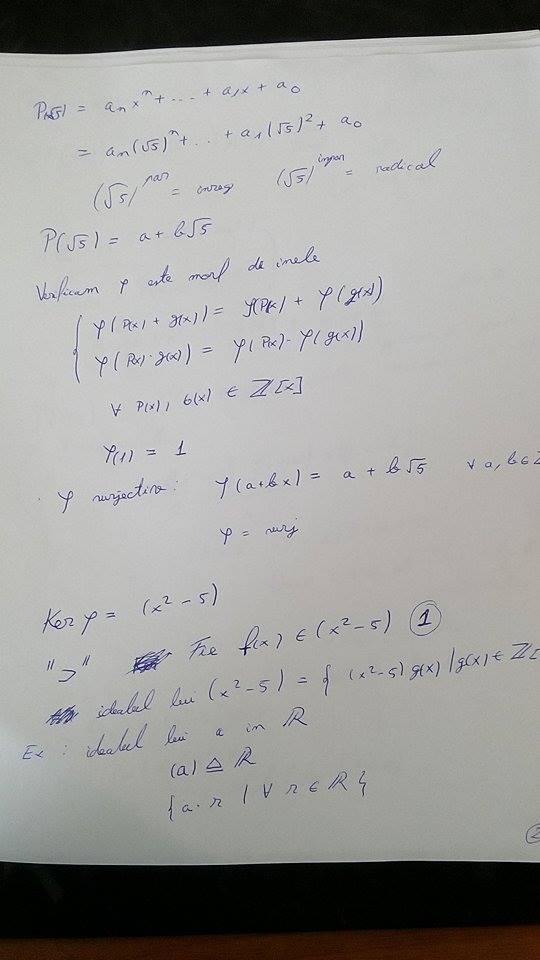 P(√5) = aₙxⁿ + ... + a₁x + a₀
= aₙ(√5)ⁿ + ... + a₁(√5)² + a₀
(√5)^par = intreg (√5)^impar = radical
P(√5) = a + b√5
Verificam φ este morf de inele
{ φ(P(x) + g(x)) = φ(P(x)) + φ(g(x))
φ(P(x) · g(x)) = φ(P(x)) · φ(g(x))
∀ P(x), G(x) ∈ ℤ[x]
φ(1) = 1
φ surjectiva: φ(a+bx) = a + b√5 ∀ a, b ∈ ℤ
φ = surj
Ker φ = (x² - 5)
"⊃" Fie f(x) ∈ (x² - 5) ①
idealul lui (x² - 5) = { (x² - 5) g(x) | g(x) ∈ ℤ[
Ex : idealul lui a in ℝ
(a) ≙ ℝ
{ a · r | ∀ r ∈ ℝ }
②